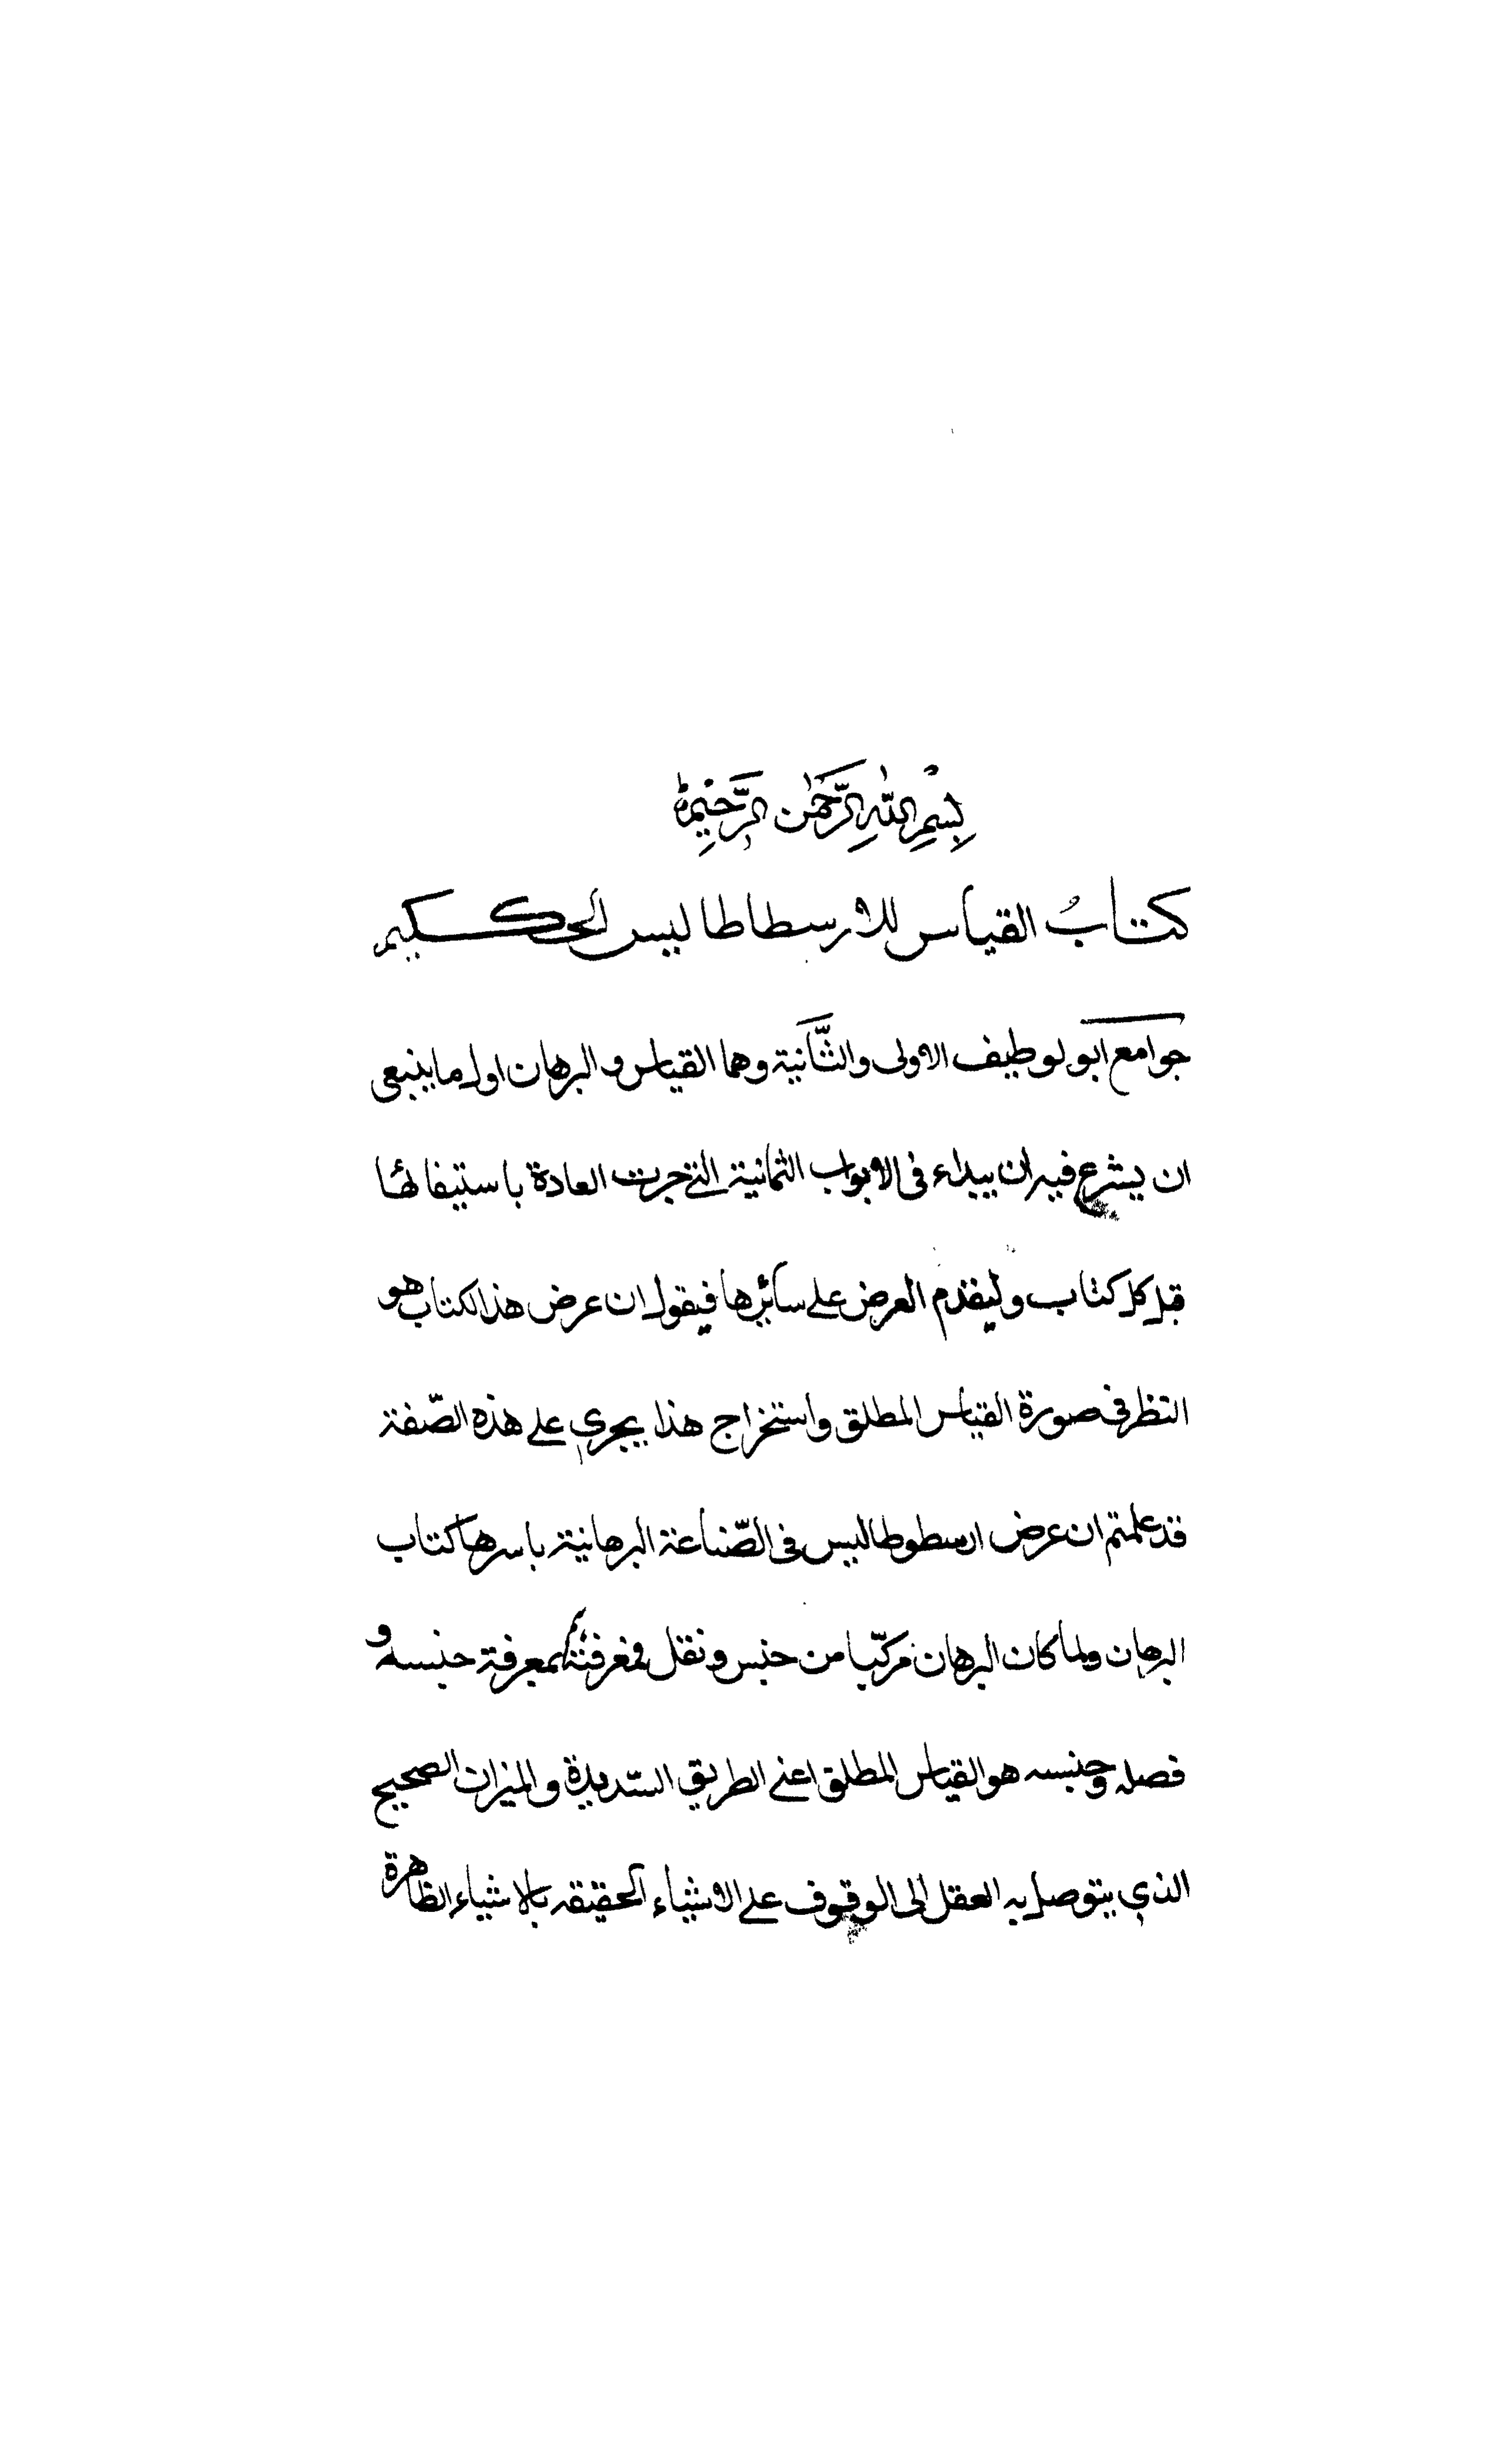 بِسْمِ اللهِ الرَّحْمٰنِ الرَّحِيْمِ
كتابُ القياس للارسطاطاليس الحكيم
جوامع ابولوطيف الاولى والثَّانية وهما القياس والبرهان اول ما ينبغى
ان يشرع فيه ان يبداء فى الابواب الثمانية التي جرت العادة باستيفائها
قبل كل كتاب وليقدم العرض على سائرها فيقول ان عرض هذا الكتاب هو
النظر فى صورة القياس المطلق واستخراج هذا يجري على هذه الصّفة
قد علمتم ان عرض ارسطوطاليس فى الصّناعة البرهانية باسرها كتاب
البرهان ولما كان البرهان مركّبا من جنس و بمعرفة جنسه و
فصله وجنسه هو القياس المطلق اعني الطريق السّديدة والميزان الصحيح
الذي يتوصل به العقل الى الوقوف على الاشياء الحقيقه بالاشياء الظاهرة